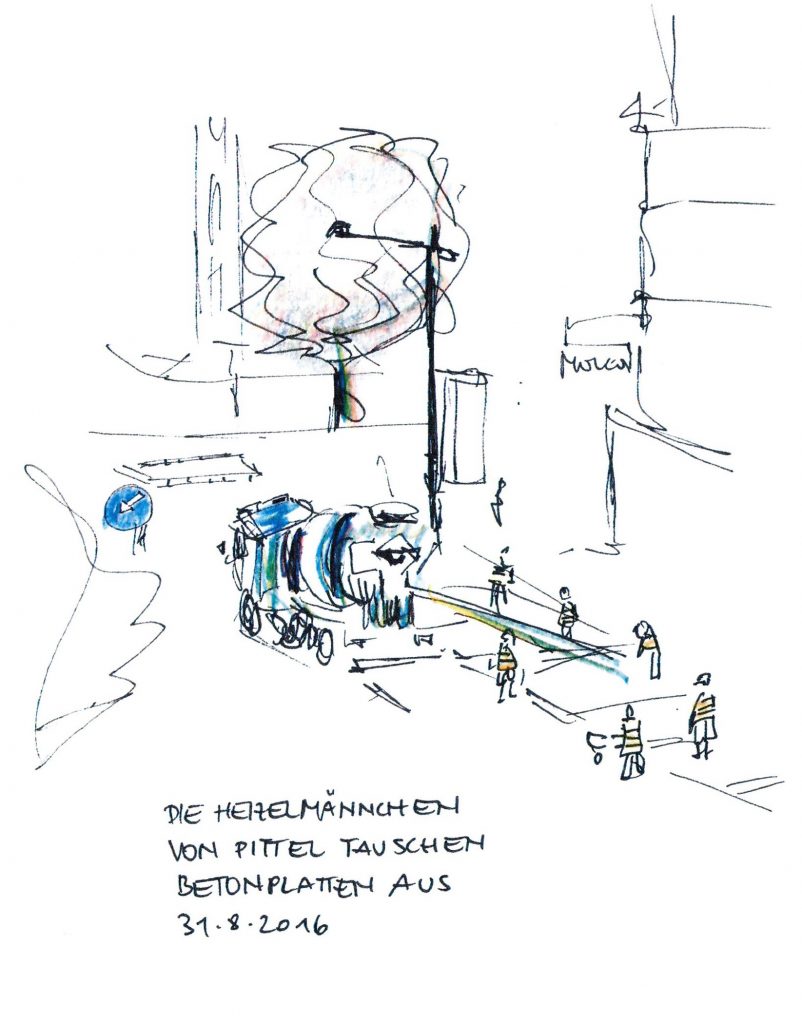 DIE HEIZELMÄNNCHEN
VON PITTEL TAUSCHEN
BETONPLATTEN AUS
31.8.2016